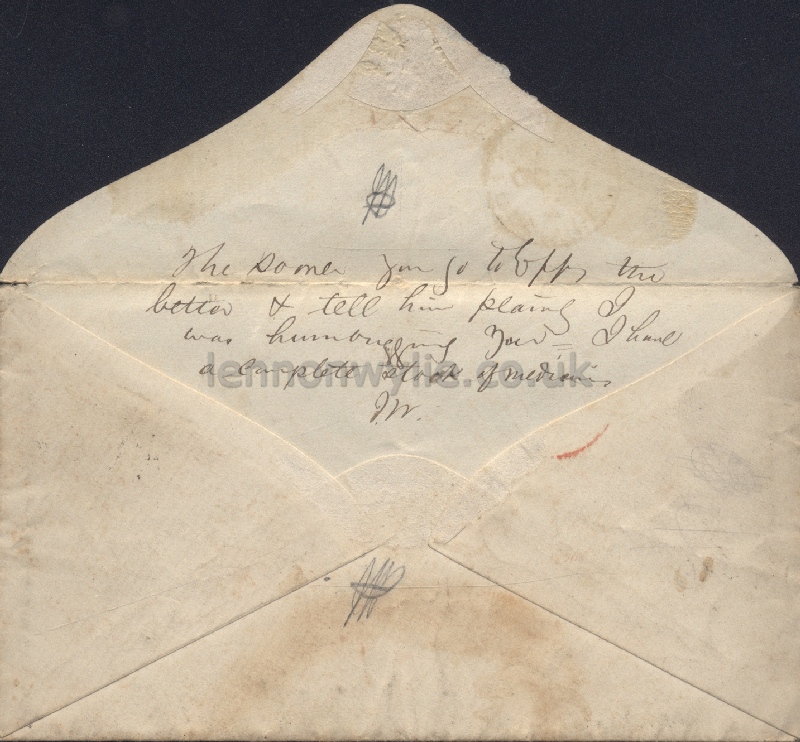 The sooner you go to Epps the
better & tell him plainly I
was humbugging you = I have
a complete stock of medicines
lennonwylie.co.uk